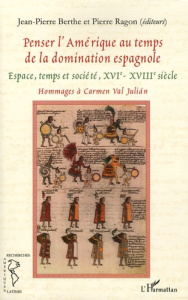 Jean-Pierre Berthe et Pierre Ragon (éditeurs)
Penser l'Amérique au temps
de la domination espagnole
Espace, temps et société, XVIᵉ- XVIIIᵉ siècle
Hommages à Carmen Val Julián
RECHERCHES
LATINES
L'Harmattan